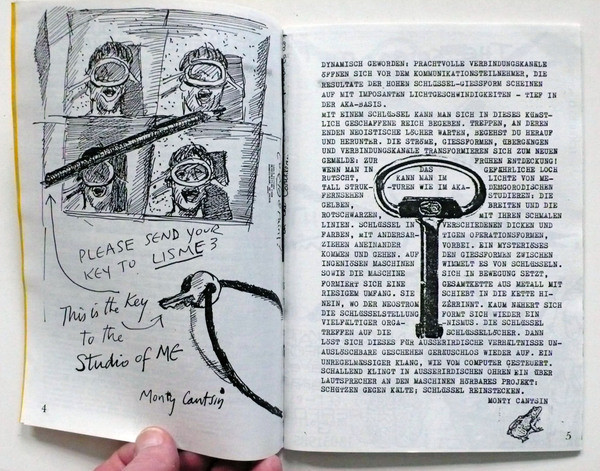 PLEASE SEND YOUR
KEY TO LISME3
This is the Key
to the
Studio of ME
Monty Cantsin
4
DYNAMISCH GEWORDEN: PRACHTVOLLE VERBINDUNGSKANÄLE
ÖFFNEN SICH VOR DEM KOMMUNIKATIONSTEILNEHMER, DIE
RESULTATE DER HOHEN SCHLÜSSEL-GIESSFORM SCHEINEN
AUF MIT IMPOSANTEN LICHTGESCHWINDIGKEITEN - TIEF IN
DER AKA-BASIS.
MIT EINEM SCHLÜSSEL KANN MAN SICH IN DIESES KÜNST-
LICH GESCHAFFENE REICH BEGEBEN. TREPPEN, AN DEREN
ENDEN NEOISTISCHE LÖCHER WARTEN, BEGEHST DU HERAUF
UND HERUNTER. DIE STRÖME, GIESSFORMEN, ÜBERGÄNGE
UND VERBINDUNGSKANÄLE TRANSFORMIEREN SICH ZUM NEUEN
GEMÄLDE: ZUR FRÜHEN ENTDECKUNG!
WENN MAN IN DAS GEFÄHRLICHE LOCH
RUTSCHT, KANN MAN IM LICHTE VON ME-
TALL STRUK- TUREN WIE IM AKA- DEMGORODISCHEN
FERNSEHEN STUDIEREN: DIE
GELBEN, BREITEN UND DIE
ROTSCHWARZEN, MIT IHREN SCHMALEN
LINIEN. SCHLÜSSEL IN VERSCHIEDENEN DICKEN UND
FARBEN, MIT ANDERSAR- TIGEN OPERATIONSFORMEN,
ZIEHEN ANEINANDER VORBEI. EIN MYSTERIÖSES
KOMMEN UND GEHEN. AUF DEN GIESSFORMEN ZWISCHEN
INGENIÖSEN MASCHINEN WIMMELT ES VON SCHLÜSSELN.
SOWIE DIE MASCHINE SICH IN BEWEGUNG SETZT,
FORMIERT SICH EINE GESAMTKETTE AUS METALL MIT
RIESIGEM UMFANG. SIE SCHIEBT IN DIE KETTE HI-
NEIN, WO DER NEOSTROM GERINNT. KAUM NÄHERT SICH
DIE SCHLÜSSELSTELLUNG FORMT SICH WIEDER EIN
VIELFÄLTIGER ORGA- NISMUS. DIE SCHLÜSSEL
TREFFEN AUF DIE SCHLÜSSELLÖCHER. DANN
LÖST SICH DIESES FÜR AUSSERIRDISCHE VERHÄLTNISSE UN-
AUSLÖSCHBARE GESCHEHEN GERÄUSCHLOS WIEDER AUF. EIN
UNREGELMÄSSIGER KLANG, WIE VOM COMPUTER GESTEUERT.
SCHALLEND KLINGT IN AUSSERIRDISCHEN OHREN EIN ÜBER
LAUTSPRECHER AN DEN MASCHINEN HÖRBARES PROJEKT:
SCHÜTZEN GEGEN KÄLTE; SCHLÜSSEL REINSTECKEN.
MONTY CANTSIN
5